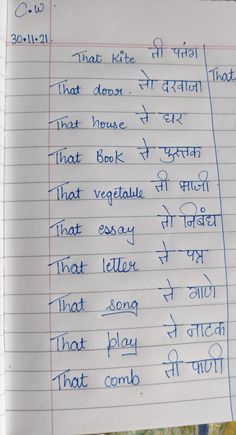 C.W
30.11.21.
That Kite ती पतंग
That door. तो दरवाजा That
That house ते घर
That Book ते पुस्तक
That vegetable ती भाजी
That essay तो निबंध
That letter ते पत्र
That song ते गाणे
That play ते नाटक
That comb ती फणी